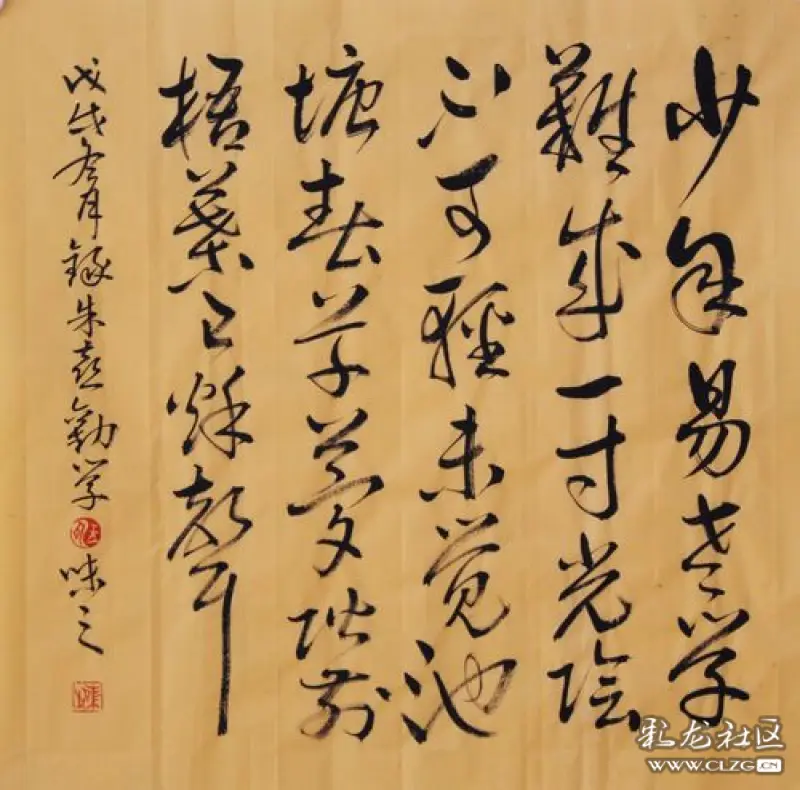 少年易老学
難成一寸光陰
不可輕未觉池
塘春草夢阶前
梧葉已秌聲
戊戌冬月録朱熹勸学 味之
彩龙社区
WWW.CLZG.CN